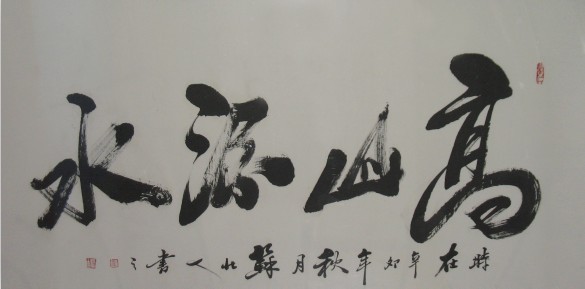 高山流水
時在辛卯年秋月蘇北人書之